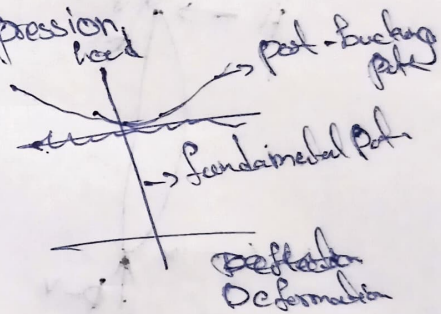 pression
load
post-buckling
path
-> fundamental path
Deflection
Deformation